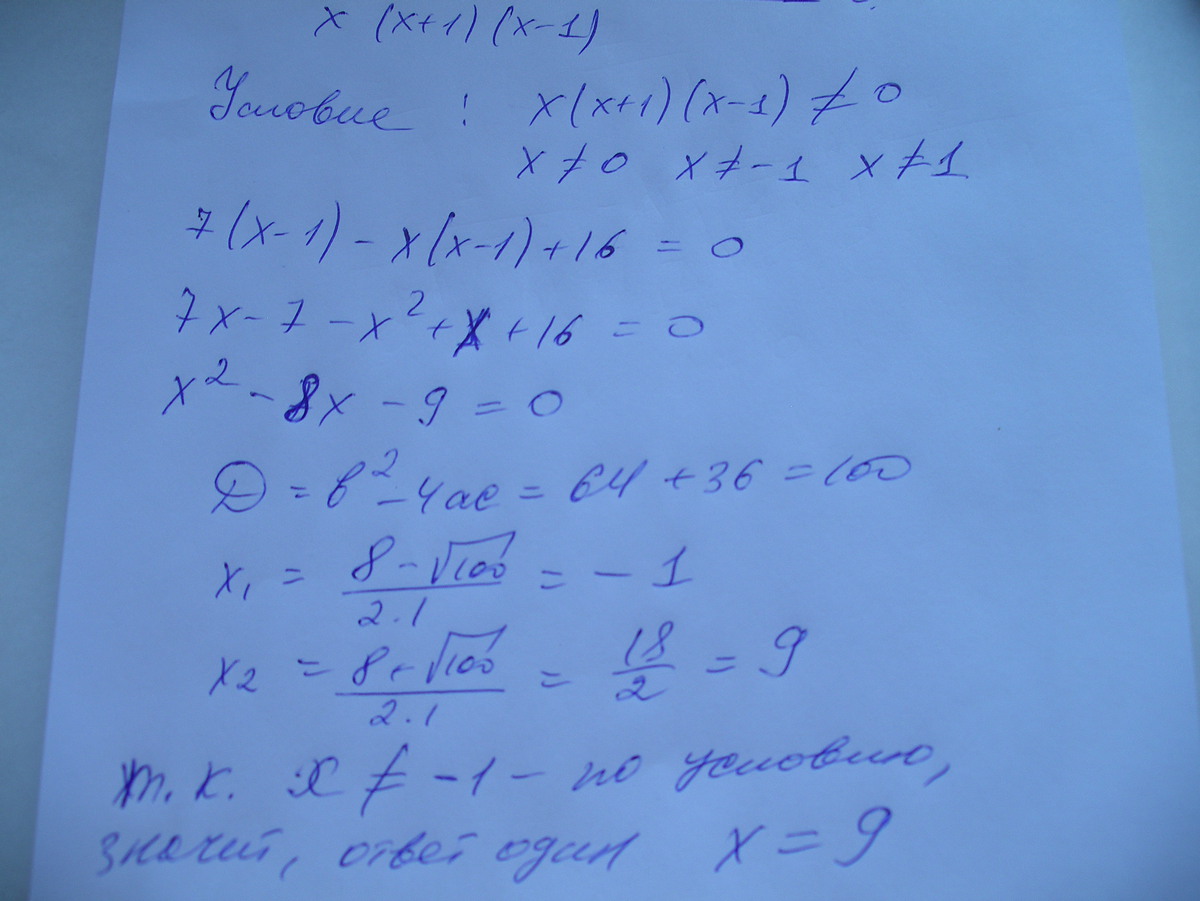 x (x+1) (x-1)
Условие : x(x+1)(x-1) ≠ 0
x ≠ 0 x ≠ -1 x ≠ 1
7(x-1) - x(x-1) + 16 = 0
7x - 7 - x² + x + 16 = 0
x² - 8x - 9 = 0
D = b² - 4ac = 64 + 36 = 100
x₁ = (8 - √100)/(2·1) = -1
x₂ = (8 + √100)/(2·1) = 18/2 = 9
т.к. x ≠ -1 - по условию,
значит, ответ один x = 9